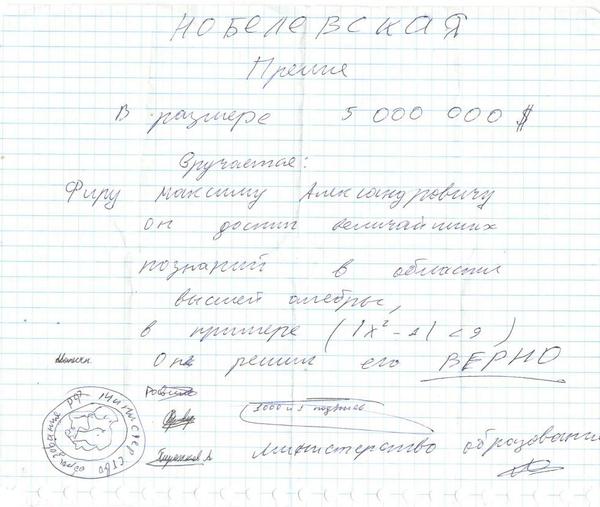 НОБЕЛЕВСКАЯ
Премия
В размере 5 000 000 $
Вручается:
Фиру Максиму Александровичу
он достиг величайших
познаний в области
высшей алебры,
в примере ( |x² - 1| < 9 )
Он решил его ВЕРНО
1000 и 1 подпись
министерство образования
министерство образования РФ